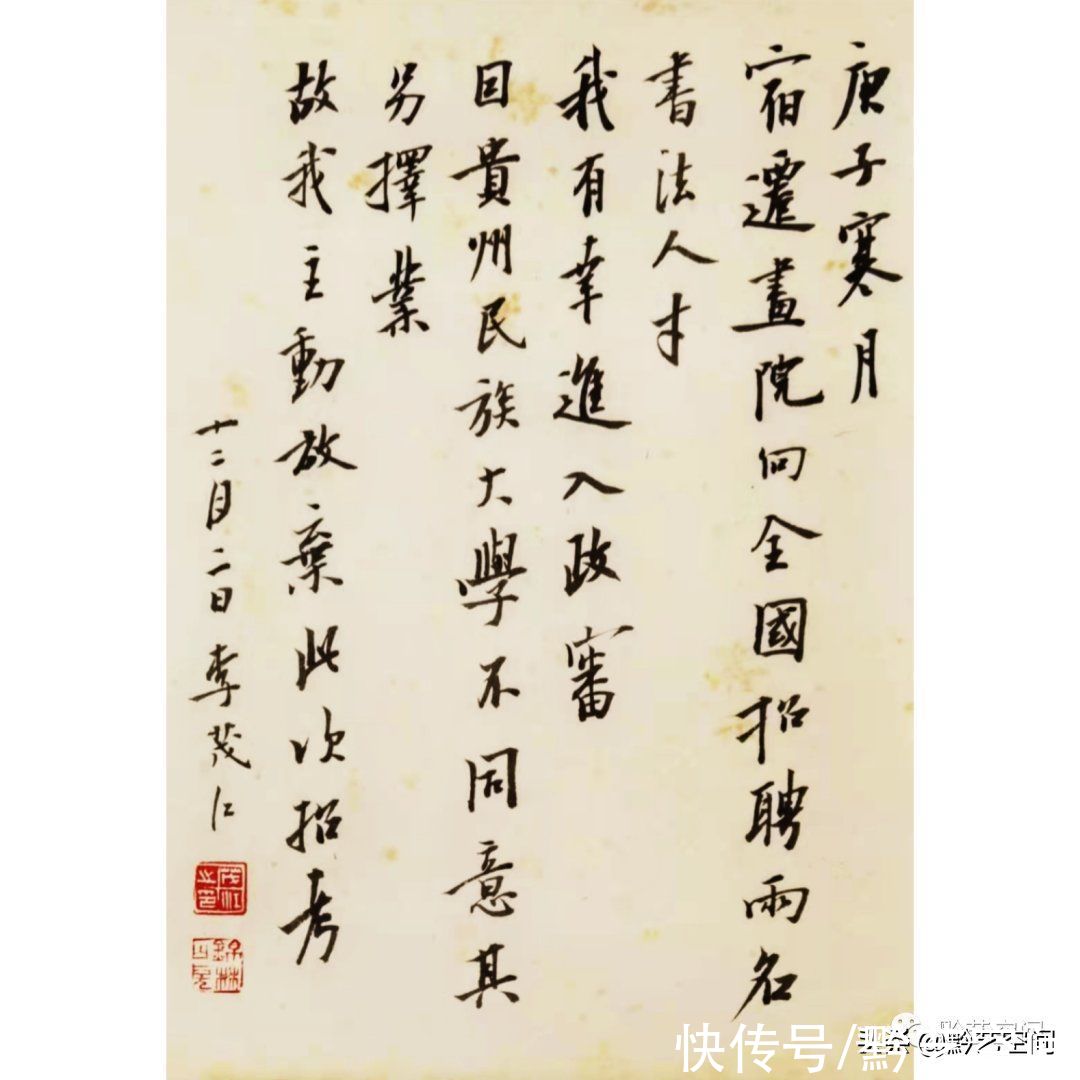 庚子寒月
宿遷畫院向全國招聘兩名
書法人才
我有幸進入政審
因貴州民族大學不同意其
另擇業
故我主動放棄此次招考
十二月二日李茂江
茂江之印
快传号/黔
头条@黔艺空间